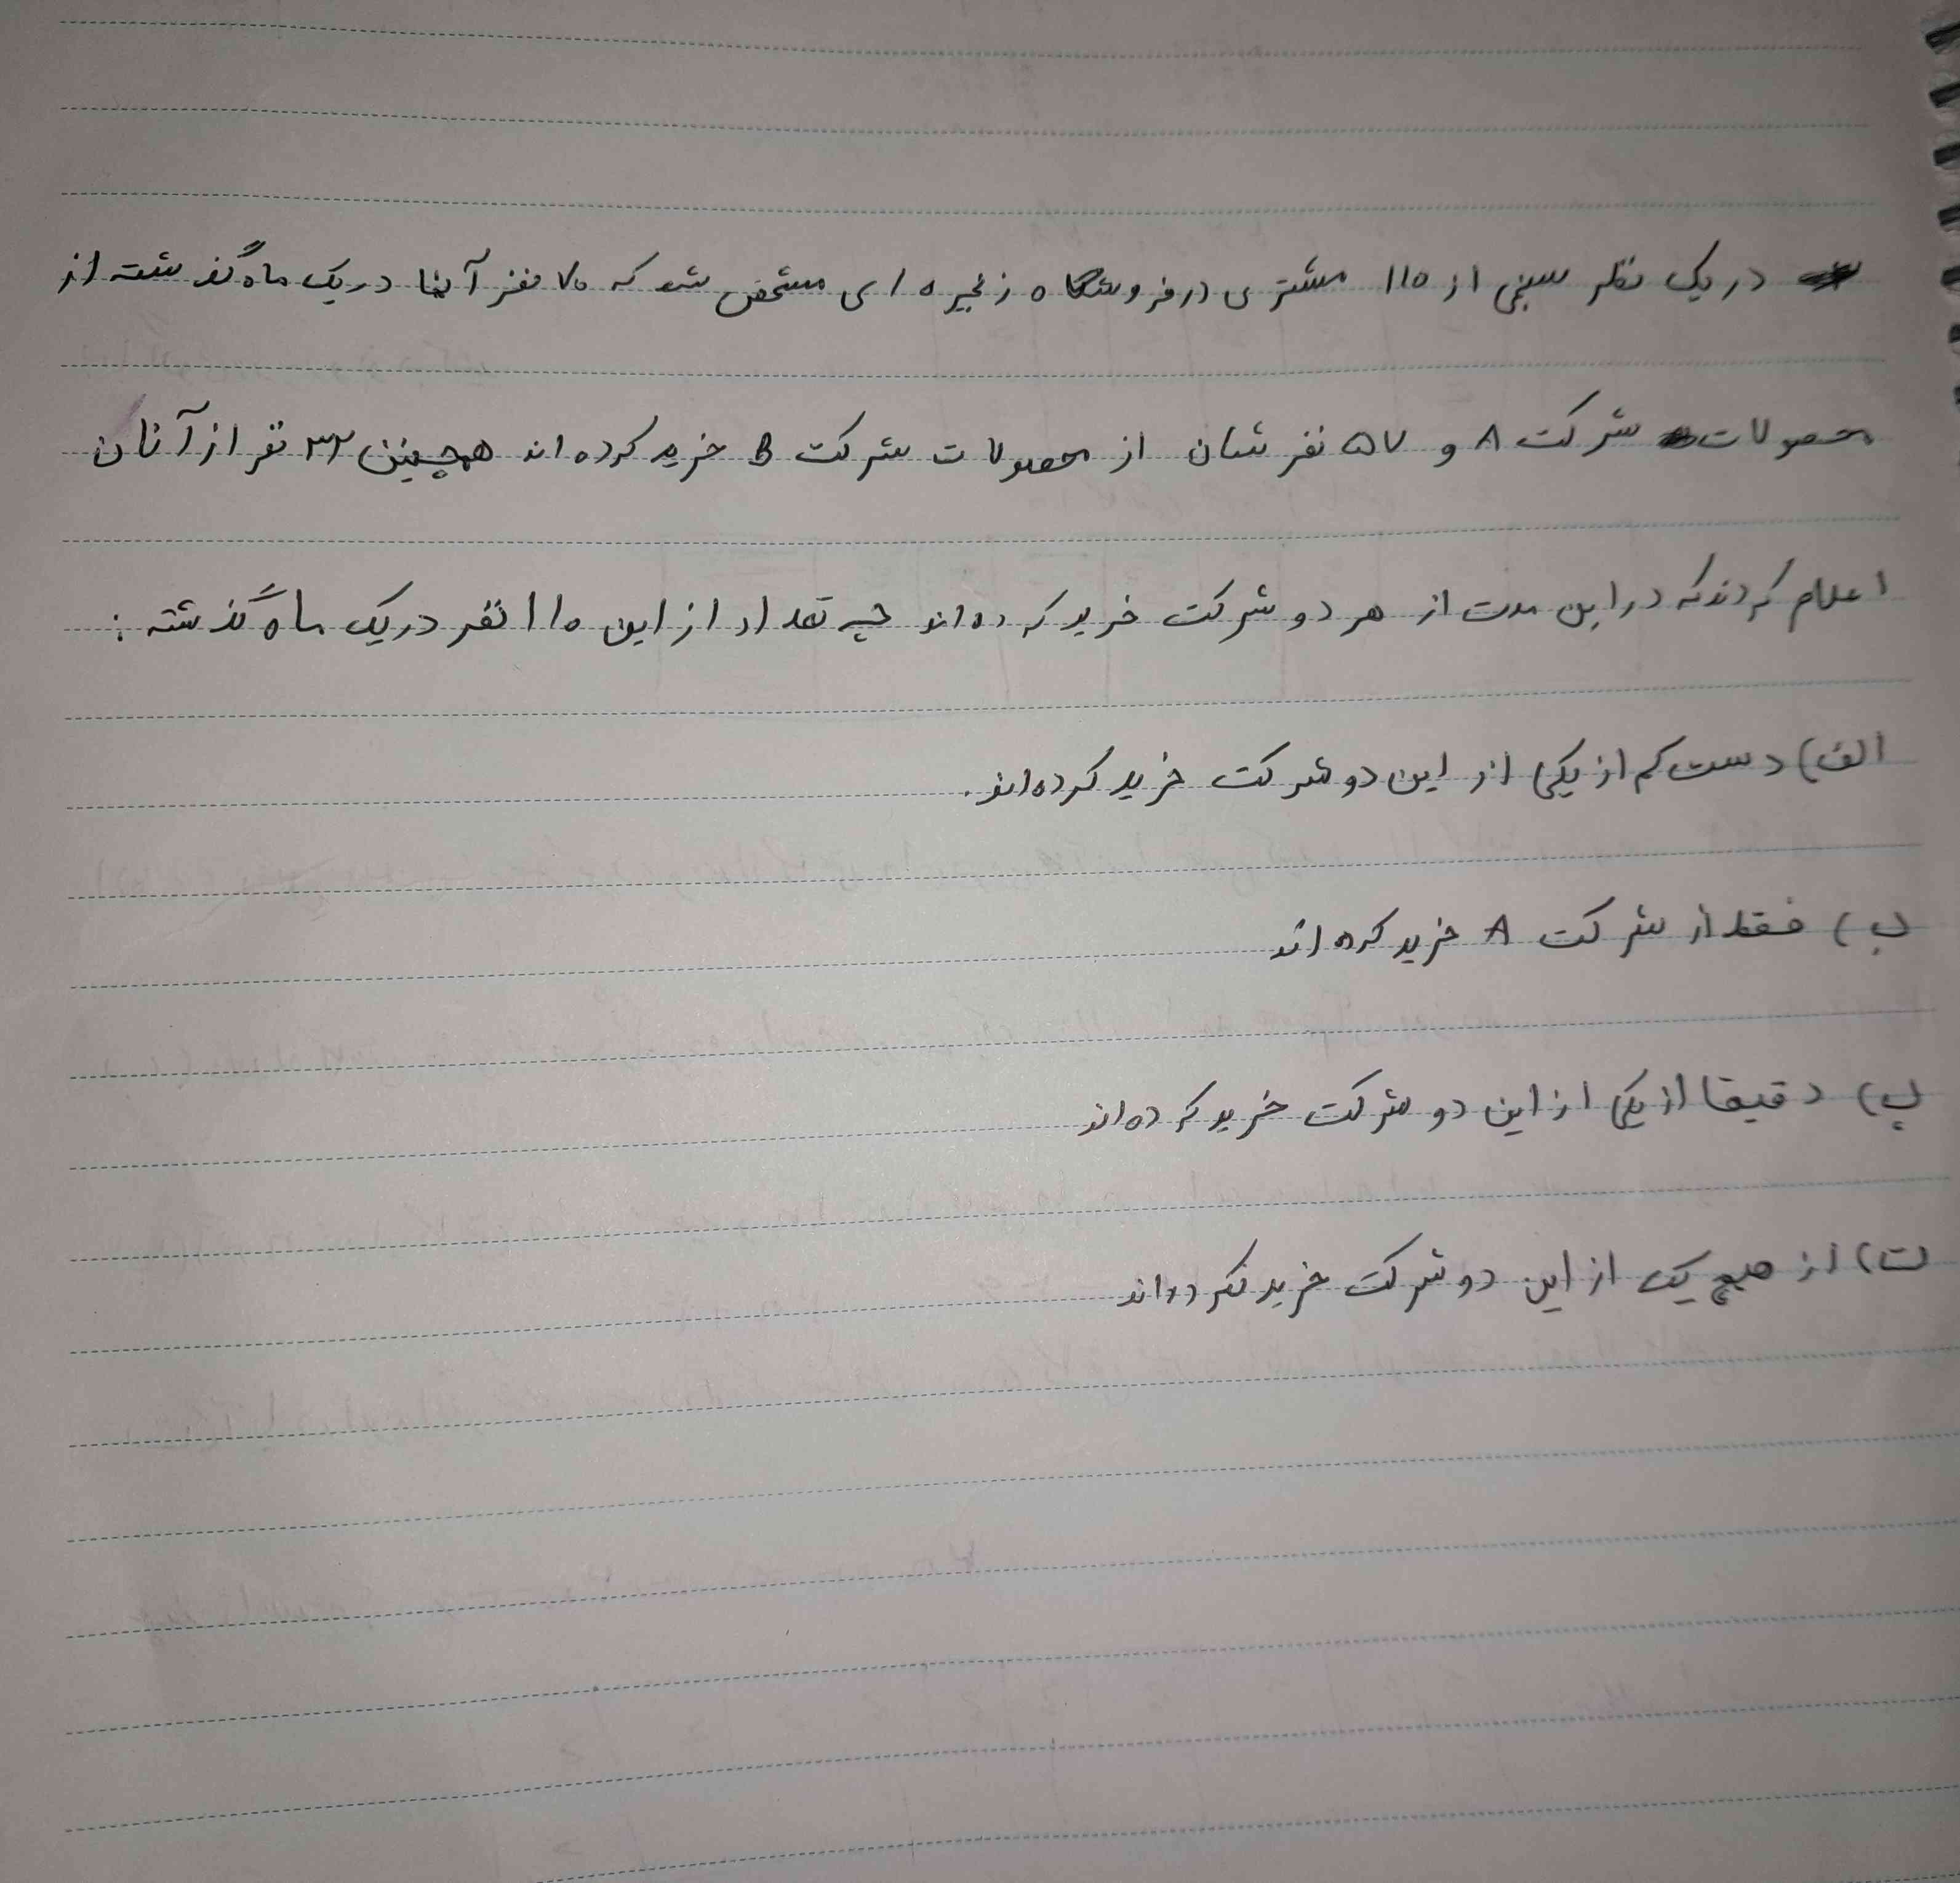 در یک نظر سنجی از ۱۱۰ مشتری در فروشگاه زنجیره ای مشخص شد که ۷۰ نفر آنها در یک ماه گذشته از
محصولات شرکت A و ۵۷ نفرشان از محصولات شرکت B خرید کرده اند همچنین ۳۲ نفر از آنان
اعلام کردند که در این مدت از هر دو شرکت خرید کرده اند چه تعداد از این ۱۱۰ نفر در یک ماه گذشته :
الف) دست کم از یکی از این دو شرکت خرید کرده اند.
ب) فقط از شرکت A خرید کرده اند
پ) دقیقا از یکی از این دو شرکت خرید کرده اند
ت) از هیچ یک از این دو شرکت خرید نکرده اند